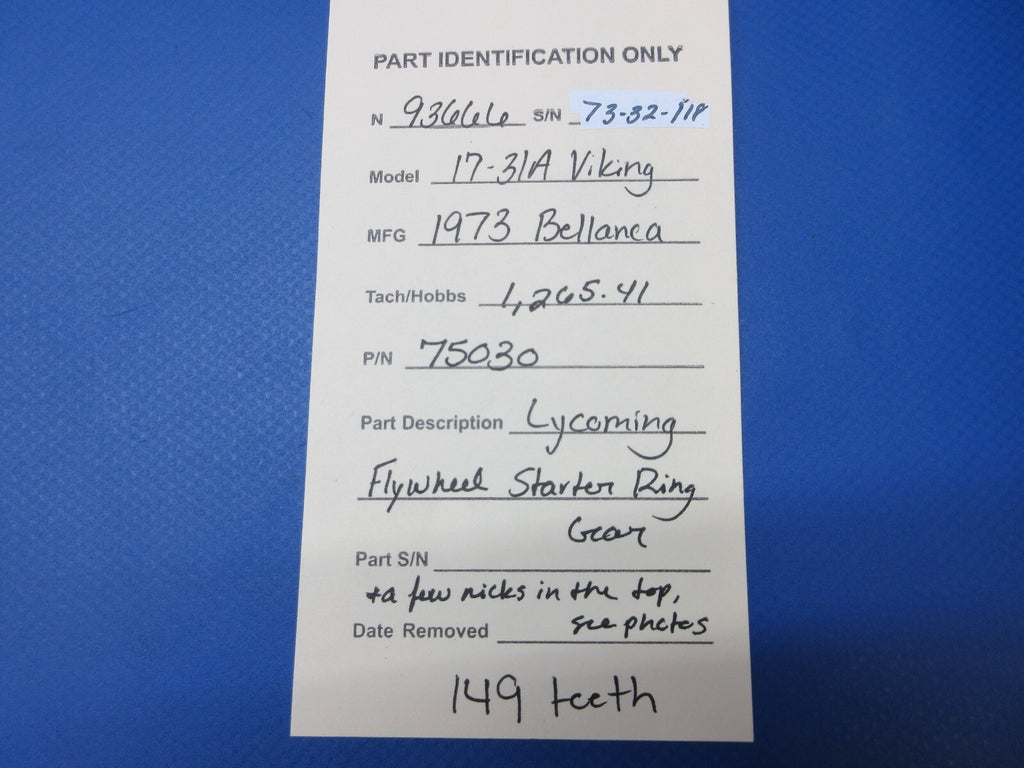 PART IDENTIFICATION ONLY
N 93666 S/N 73-32-118
Model 17-31A Viking
MFG 1973 Bellanca
Tach/Hobbs 1,265.41
P/N 75030
Part Description Lycoming
Flywheel Starter Ring
Gear
Part S/N
*a few nicks in the top,
Date Removed see photos
149 teeth